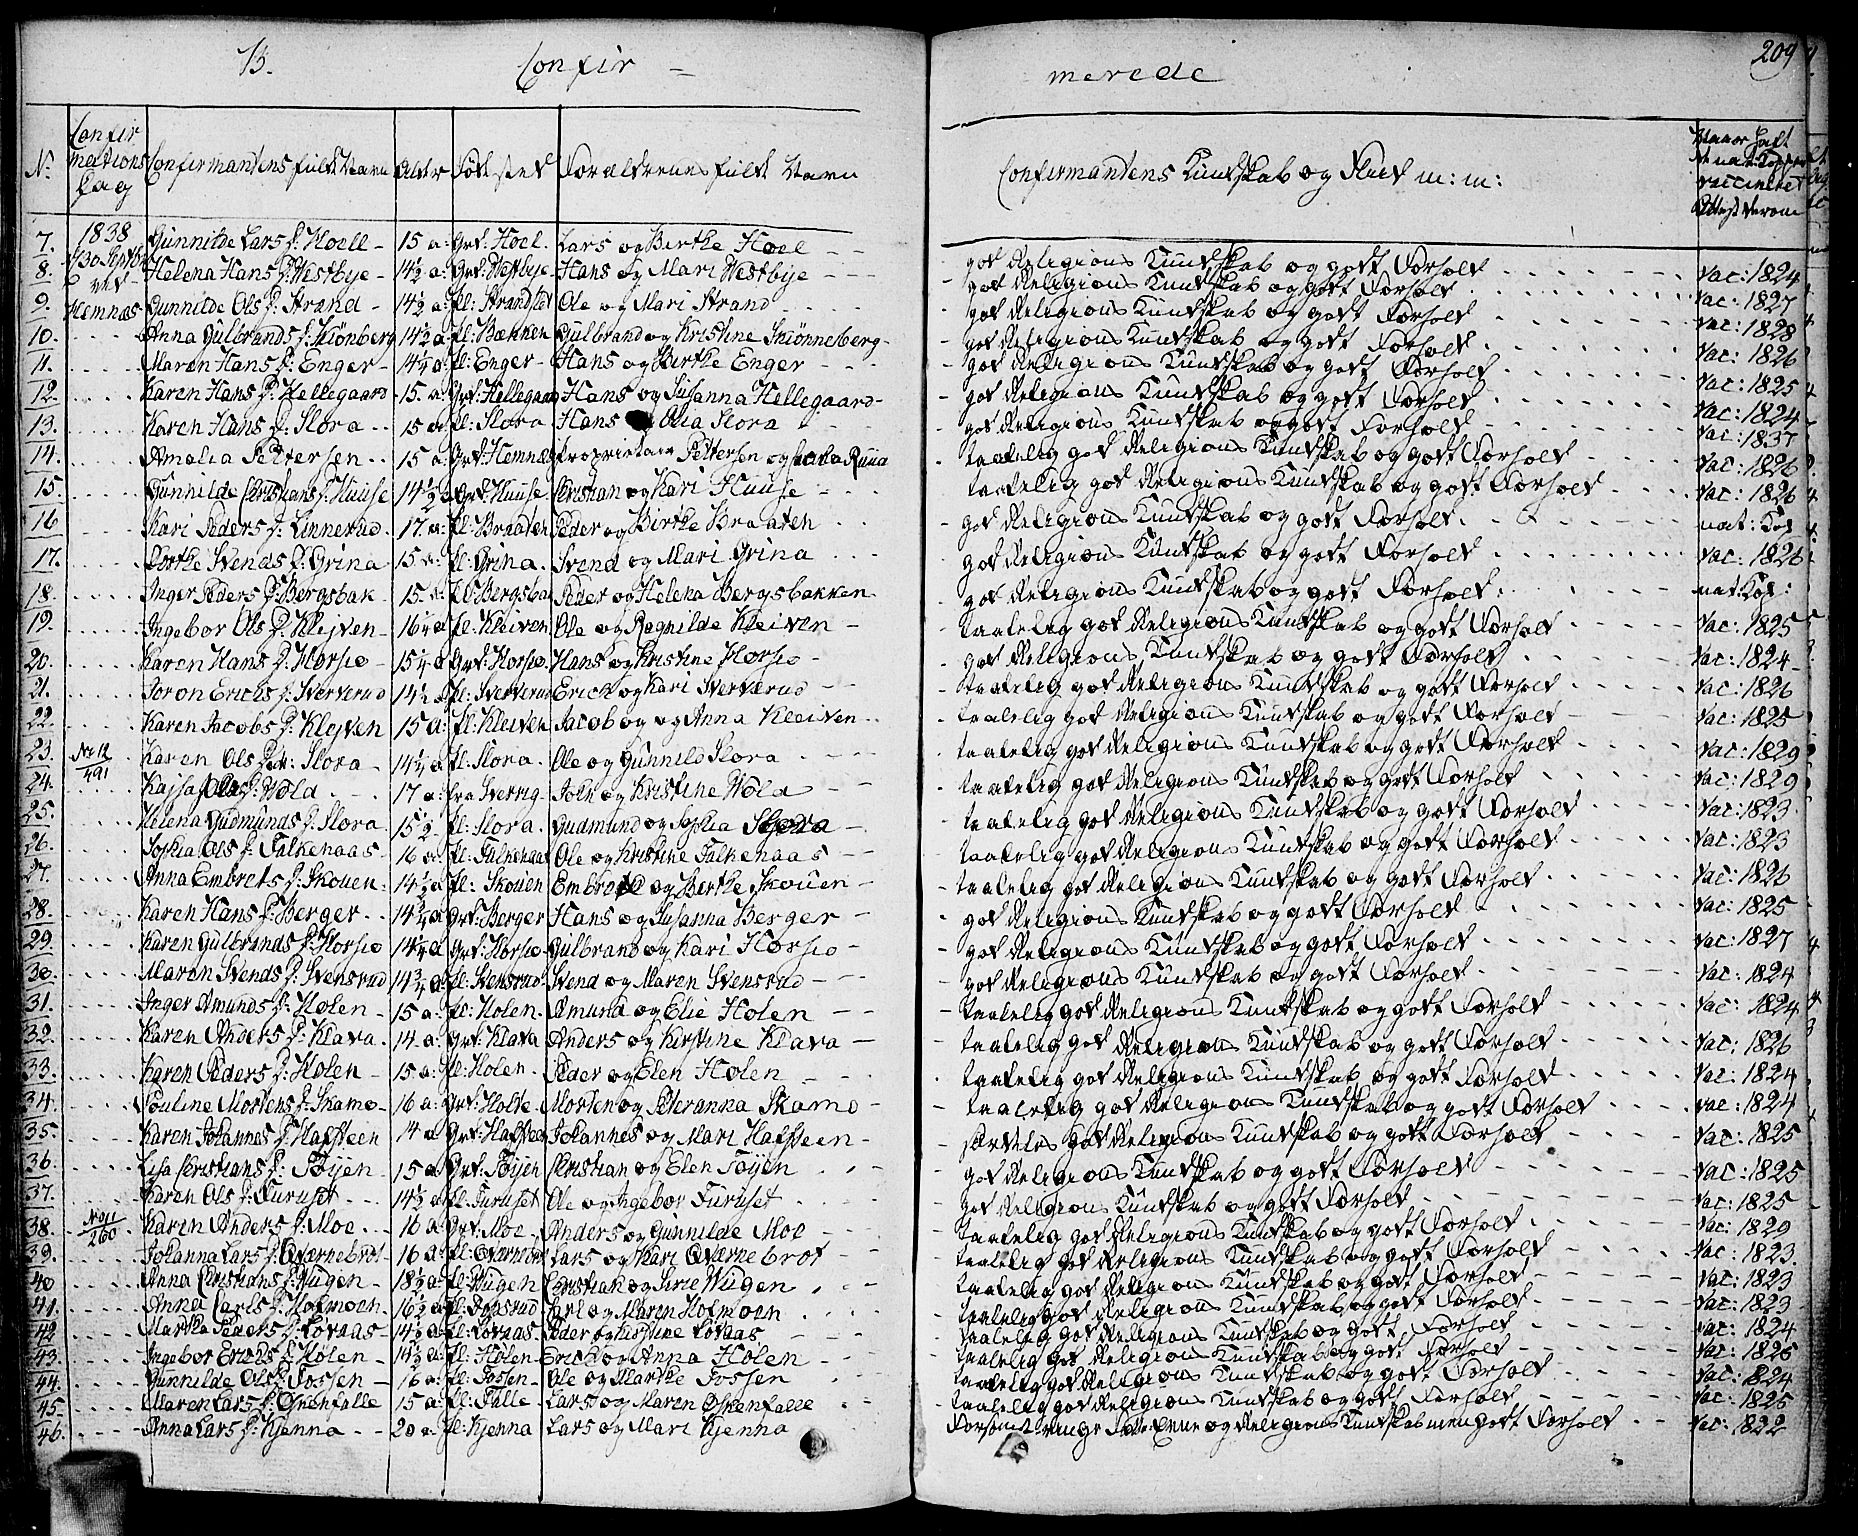 B. Confir = merede 209
No. Confirmations Dag Confirmandens fulde Navn Alder Fødested Forældrenes fulde Navn Confirmandens Kundskab og Flid m: m: Naar haft de nat: Kopper vaccineret Attest derom
7. 1838 Gunnilde Lars D: Hoell - 15 a: Grd: Hoel. Lars og Birthe Hoel god Religions Kundskab og godt Forhold Vac: 1824
8. d 30 Septbr ved Helena Hans D: Westbye - 14½ a: Grd: Westbye - Hans og Mari Westbye god Religions Kundskab og godt Forhold Vac: 1827
9. Hemnæs Gunnilde Ols D: Strand - 14½ a: Pl: Strand Ole og Mari Strand god Religions Kundskab og godt Forhold Vac: 1828
10. Anna Gulbrands D: Skiønberg 14½ a: Pl: Bækken Gulbrand og Kristine Skiønneberg - god Religions Kundskab og godt Forhold Vac: 1826
11. Maren Hans D: Enger - 14¼ a: Pl: Enger - Hans og Birthe Enger god Religions Kundskab og godt Forhold Vac: 1825
12. Karen Hans D: Hellegaard - 15 a: Grd: Hellegaard Hans og Susanna Hellegaard - god Religions Kundskab og godt Forhold Vac: 1824
13. Karen Hans D: Slora 15 a: Pl: Slora Hans Olia Slora god Religions Kundskab og godt Forhold Vac: 1837
14. Amalia Pettersen 15 a: Grd: Hemnæs Proprietair Pettersen og taalelig god Religions Kundskab og godt Forhold Vac: 1826
15. Gunhilde Christians D: Huuse 14½ a: Grd: Huuse Christian og Kari Huuse taalelig god Religions Kundskab og godt Forhold Vac: 1826
16 Kari Peders D: Linnerud 17 a: Pl: Braaten Peder og Birthe Braaten god Religions Kundskab og godt Forhold nat: Kop
17. Dorthe Svends D: Grina 15 a: Pl: Grina. Svend og Mari Grina god Religions Kundskab og godt Forhold Vac: 1826
18. Inger Peders D: Bergsbak 15 a: Pl: Bergsbak Peder og Helena Bergsbakken god Religions Kundskab og godt Forhold nat: Kop:
19. Ingebor Ols D: Klejven - 16¼ a: Pl: Kleiven Ole og Ragnilde Kleiven - taalelig god Religions Kundskab og godt Forhold Vac: 1825
20. Karen Hans D: Horsio - 15¼ a: Grd: Horsio. Hans og Kristine Horsio - god Religions Kundskab og godt Forhold Vac: 1824
21. Joron Erichs D: Sververud 14½ a: Pl: Sververud Erich og Kari Sververud taalelig god Religions Kundskab og godt Forhold Vac: 1826
22. Karen Jacobs D: Klejven 15 a: Pl: Kleiven Jacob og og Anna Kleiven taalelig god Religions Kundskab og godt Forhold Vac: 1825
23. No 12/491 Karen Ols D: Slora - 14¼ a: Pl: Slora. Ole og Gunnild Slora taalelig god Religions Kundskab og godt Forhold Vac: 1829
24. Kajsa D: Wola 17 a: fra Sverrig - John og Kristine Wola taalelig god Religions Kundskab og godt Forhold Vac: 1829
25. Helena Gudmunds D: Slora 15½ Pl: Slora. Gudmund og Sophia Slora - taalelig god Religions Kundskab og godt Forhold Vac: 1823
26. Sophia Ols D: Falkenaas - 16 a: Pl: Falkenaas Ole og Kristine Falkenaas taalelig god Religions Kundskab og godt Forhold Vac: 1823
27. Anna Embrets D: Skouen. 14½ a: Pl: Skouen Embret og Berthe Skouen - taalelig god Religions Kundskab og godt Forhold Vac: 1826
28. Karen Hans D: Berger. 14¼ a Grd: Berger Hans og Susanna Berger - god Religions Kundskab og godt Forhold Vac: 1825
29. Karen Gulbrands D: Horsio 14¼ a Grd: Horsio Gulbrand og Kari Horsio - god Religions Kundskab og godt Forhold Vac: 1827
30. Maren Svends D: Svensrud 14¾ a: Pl: Svensrud Svend og Maren Svensrud god Religions Kundskab og godt Forhold Vac: 1824
31. Inger Amunds D: Holen - 15 a: Pl: Holen. Amund og Elie Holen taalelig god Religions Kundskab og godt Forhold Vac: 1824
32. Karen Anders D: Klava. 14 a: Grd: Klava Anders og Kirstine Klava taalelig god Religions Kundskab og godt Forhold Vac: 1826
33. Karen Peders D: Holen - 15 a: Pl: Holen. Peder og Elen Holen taalelig god Religions Kundskab og godt Forhold Vac: 1824
34. Pouline Mortens D: Skamo - 16 a: Grd: Holte. Morten og Peteranna Skamo taalelig god Religions Kundskab og godt Forhold Vac: 1824
35. Karen Johannes D: Hafsteen 14 a Grd: Hafsteen Johannes og Mari Hafsteen - særdeles god Religions Kundskab og godt Forhold Vac: 1825
36. Lisa Christians D: Tøyen 15 a Grd: Tøijen Christian og Elen Tøyen god Religions Kundskab og godt Forhold Vac: 1825
37. Karen Ols D: Furuset 14½ a Pl: Furuset Ole og Ingebor Furuset god Religions Kundskab og godt Forhold Vac: 1825
38. No 11/260 Karen Anders D: Moe 16 a Grd: Moe - Anders og Gunnilde Moe taalelig god Religions Kundskab og godt Forhold Vac: 1829
39. Johanna Lars D: Qværnebrot 16 a: Pl: Qværnebrot Lars og Kari Qværnebrot taalelig god Religions Kundskab og godt Forhold Vac: 1823.
40 Anna Christians D: Wugen - 18½ a: Pl: Wugen Christian og Sirie Wugen taalelig god Religions Kundskab og godt Forhold Vac: 1823
41. Anna Carls D: Hofmoen. 16½ a Pl: Carl og Maren Hofmoen taalelig god Religions Kundskab og godt Forhold Vac: 1823
42 Martha Peders D: Løvaas - 14½ a: Pl: Løvaas Peder og Kirstine Løvaas taalelig god Religions Kundskab og godt Forhold Vac: 1824
43. Ingebor Erichs D: Holen - 14½ a: Pl: Holen - Erich og Anna Holen taalelig god Religions Kundskab og godt Forhold Vac: 1825
44. Gunnilde Ols D: Fossen - 16 a: Pl: Fossen - Ole og Marthe Fossen taalelig god Religions Kundskab og godt Forhold Vac: 1824
45. Maren Lars D: Ønenfalle 15 a: Pl: Falle - Lars og Maren Ønenfalle taalelig god Religions Kundskab og godt Forhold Vac: 1825
46. Anna Lars D: Kjenna 20 a. Pl: Kjenna Lars og Mari Kjenna ringe Evne og Religions Kundskab men godt Forhold Vac: 1822